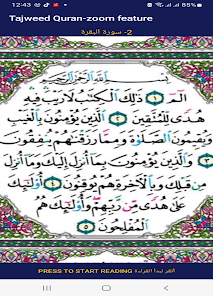 12:43
Tajweed Quran-zoom feature
2- سورة البقرة
بِسْمِ اللَّهِ الرَّحْمَٰنِ الرَّحِيمِ
الٓمٓ ١ ذَٰلِكَ الْكِتَٰبُ لَا رَيْبَ فِيهِ
هُدًى لِّلْمُتَّقِينَ ٢ الَّذِينَ يُؤْمِنُونَ بِالْغَيْبِ
وَيُقِيمُونَ الصَّلَوٰةَ وَمِمَّا رَزَقْنَٰهُمْ يُنفِقُونَ
٣ وَالَّذِينَ يُؤْمِنُونَ بِمَآ أُنزِلَ إِلَيْكَ وَمَآ أُنزِلَ
مِن قَبْلِكَ وَبِالْءَاخِرَةِ هُمْ يُوقِنُونَ ٤ أُو۟لَٰٓئِكَ
عَلَىٰ هُدًى مِّن رَّبِّهِمْ وَأُو۟لَٰٓئِكَ هُمُ
الْمُفْلِحُونَ ٥
PRESS TO START READING أنقر لبدأ القراءة